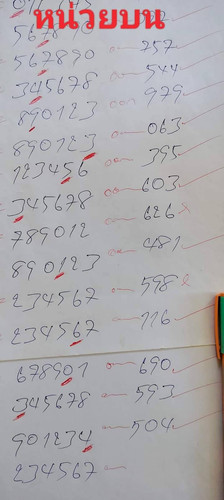 หน่วยบน
567890
257
567890
544
345678
979
890123
063
890123
395
123456
603
345678
626
789012
481
890123
598
234567
116
234567
678901
690
345678
593
901234
504
234567